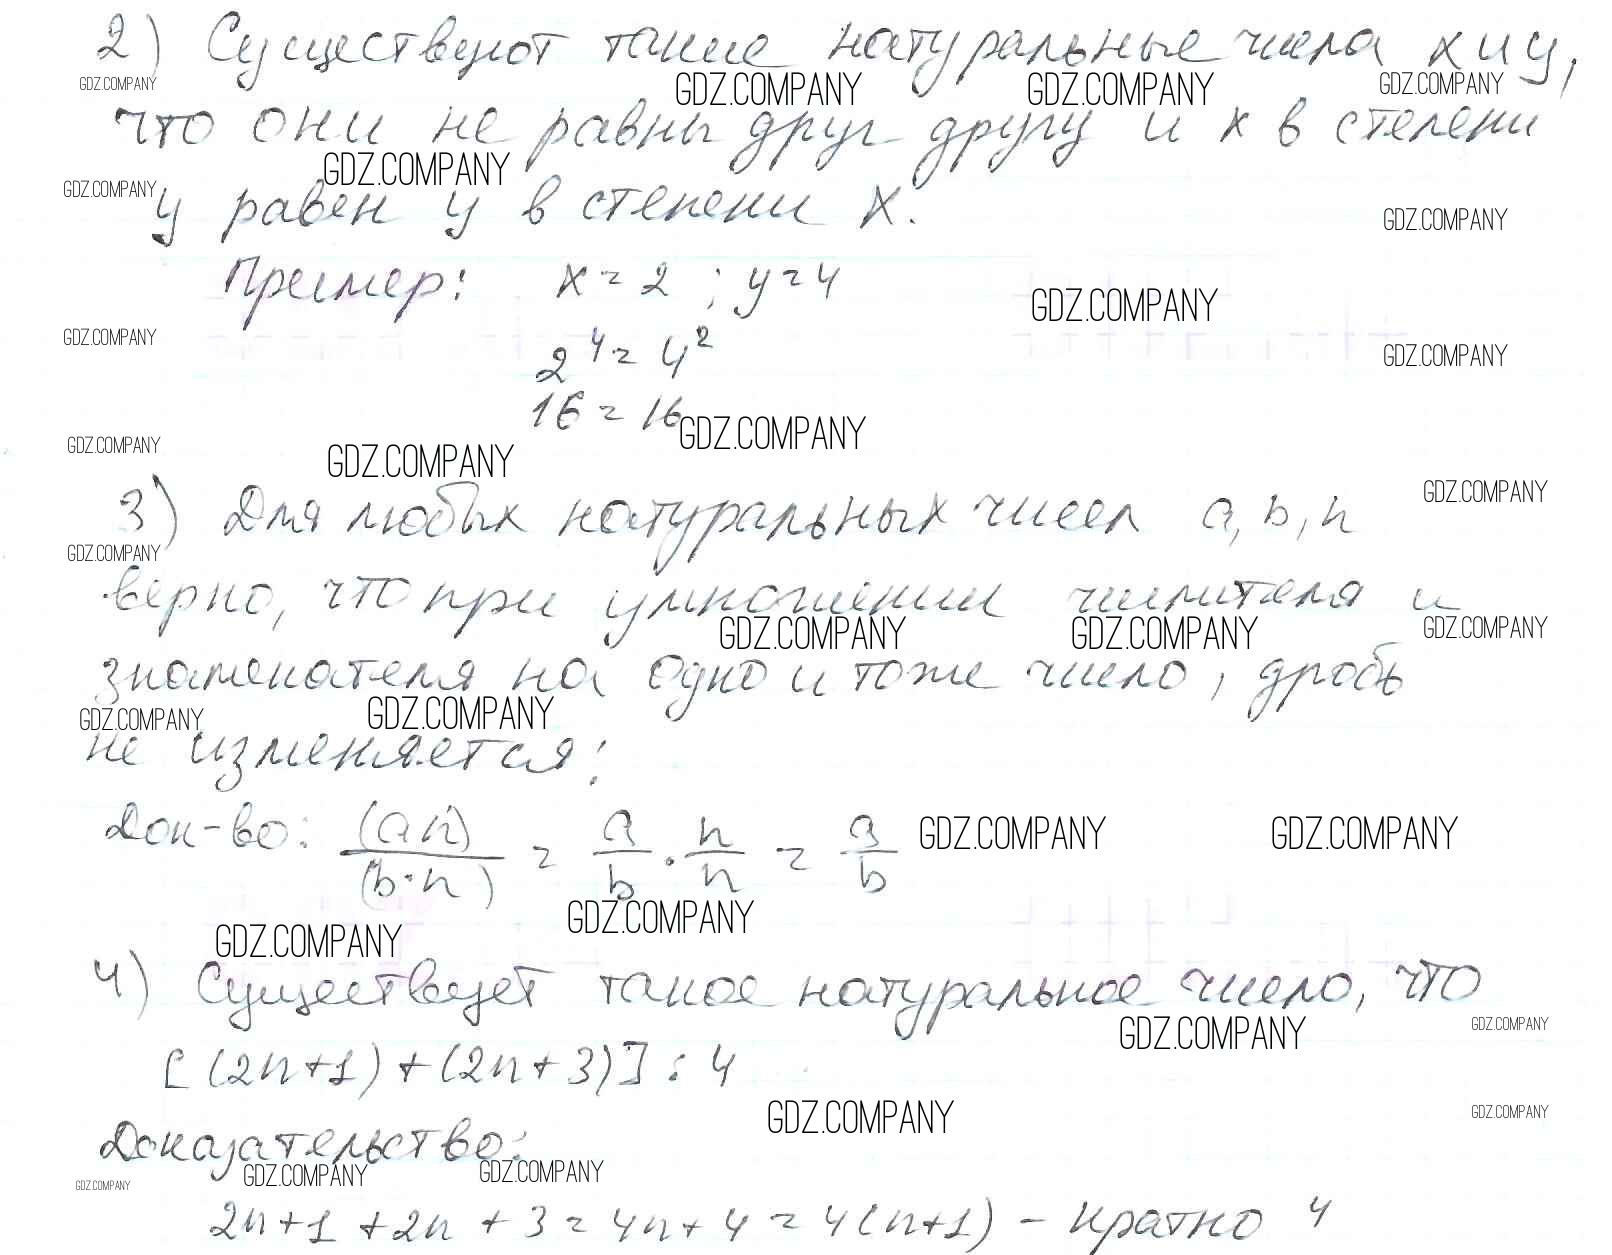 2) Существуют такие натуральные числа x и y,
GDZ.COMPANY GDZ.COMPANY GDZ.COMPANY GDZ.COMPANY
что они не равны друг другу и x в степени
GDZ.COMPANY GDZ.COMPANY
y равен y в степени x.
GDZ.COMPANY
Пример: x = 2 ; y = 4
GDZ.COMPANY
GDZ.COMPANY GDZ.COMPANY
2⁴ = 4²
16 = 16
GDZ.COMPANY
GDZ.COMPANY GDZ.COMPANY
GDZ.COMPANY
3) Для любых натуральных чисел a, b, n
GDZ.COMPANY
верно, что при умножении числителя и
GDZ.COMPANY GDZ.COMPANY GDZ.COMPANY
знаменателя на одно и тоже число, дробь
GDZ.COMPANY GDZ.COMPANY
не изменяется:
Док-во: (a·n)/(b·n) = a/b · n/n = a/b
GDZ.COMPANY GDZ.COMPANY
GDZ.COMPANY
GDZ.COMPANY
4) Существует такое натуральное число, что
GDZ.COMPANY GDZ.COMPANY
[(2n+1) + (2n+3)] : 4
GDZ.COMPANY GDZ.COMPANY
Доказательство:
GDZ.COMPANY GDZ.COMPANY GDZ.COMPANY
2n+1 +2n +3 = 4n+4 = 4(n+1) - кратно 4